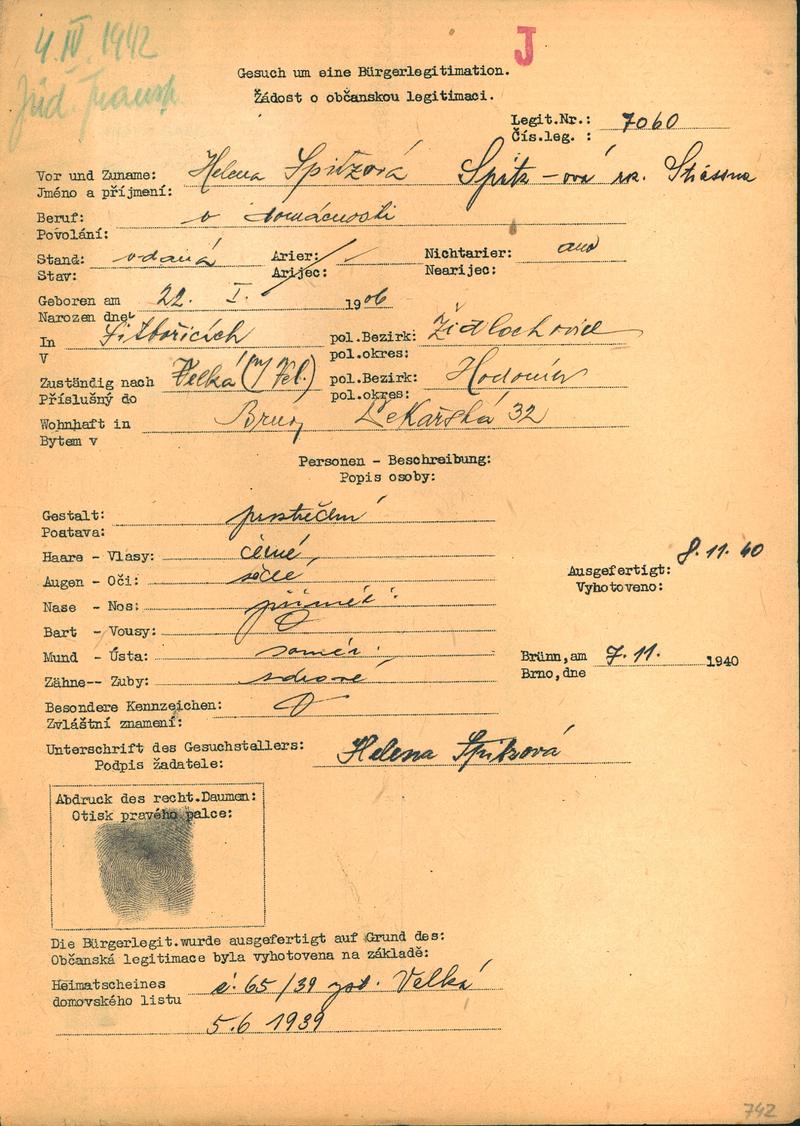 4. IV. 1942
Jüd. Transp.
J
Gesuch um eine Bürgerlegitimation.
Žádost o občanskou legitimaci.
Legit.Nr.: 7060
Čís.leg. :
Vor und Zuname: Helena Spitzová Spitz-ová roz. Stiassna
Jméno a příjmení:
Beruf: v domácnosti
Povolání:
Stand: vdaná Arier: Nichtarier: ano
Stav: Arijec: Nearijec:
Geboren am 22. I. 1906
Narozen dne
In pol.Bezirk: Židlochovice
V pol.okres:
Zuständig nach Velká (n/Vel.) pol.Bezirk: Hodonín
Příslušný do pol.okres:
Wohnhaft in Brno, Lékařská 32
Bytem v
Personen - Beschreibung:
Popis osoby:
Gestalt: prostřední
Postava:
Haare - Vlasy: černé
Augen - Oči: šedé
Nase - Nos:
Bart - Vousy:
Mund - Ústa:
Zähne-- Zuby: zdravé
Besondere Kennzeichen:
Zvláštní znamení:
Ausgefertigt: 8. 11. 40
Vyhotoveno:
Brünn,am 7. 11. 1940
Brno,dne
Unterschrift des Gesuchstellers: Helena Spitzová
Podpis žadatele:
Abdruck des recht.Daumen:
Otisk pravého palce:
Die Bürgerlegit.wurde ausgefertigt auf Grund des:
Občanská legitimace byla vyhotovena na základě:
Heimatscheines č. 65/39 Velká
domovského listu
5.6 1939
742